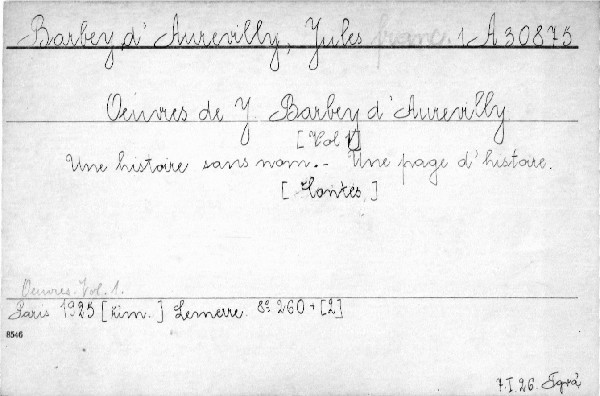 Barbey d'Aurevilly, Jules franc. 1 A 30875
Oeuvres de J. Barbey d'Aurevilly
[Vol 1]
Une histoire sans nom. - Une page d'histoire.
[Contes.]
Oeuvres. Vol. 1.
Paris 1925 [kim.] Lemerre. 8º 260 + [2]
8546
7.I.26.